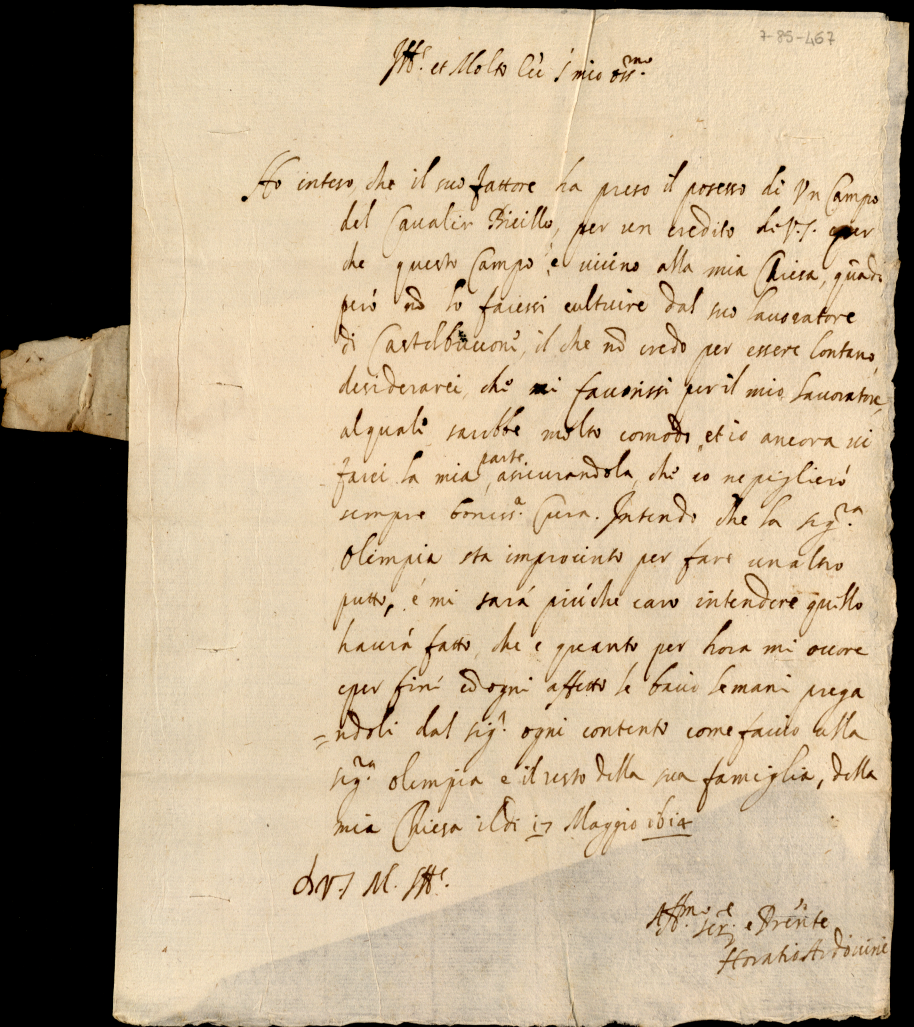 7-85-467
Ill.re et Molto Ecc S. mio oss.mo
Ho inteso, che il suo fattore ha preso il posesso di Vn Campo
del Cavalir Bicillo, per un credito di V.S. e per
che questo Campo è vicino alla mia Chiesa, quãdo
però nõ lo facessi cultuire dal suo lauoratore
di Castelbuccone, il che nõ credo per essere lontano,
desiderarei, che mi fauorissi per il mio lauoratore,
al quale sarebbe molto comodo, et io ancora ui
farei la mia parte, asicurandola, che io ne piglierò
sempre boniss.a Cura. Intendo che la sig.ra
Olimpia sta improcinto per fare un altro
putto, é mi sará piú che caro intendere quello
haurá fatto, che e quanto per hora mi occore
e per finé ed ogni affetto le bacio le mani prega
=ndoli dal sig.r ogni contento come faccio alla
sig.ra Olimpia e il resto della sua famiglia, della
mia Chiesa il di 17 Maggio 1614
di V.S M. Ill.re
Aff.mo ser.e e Parẽte
Horatio Ardouini